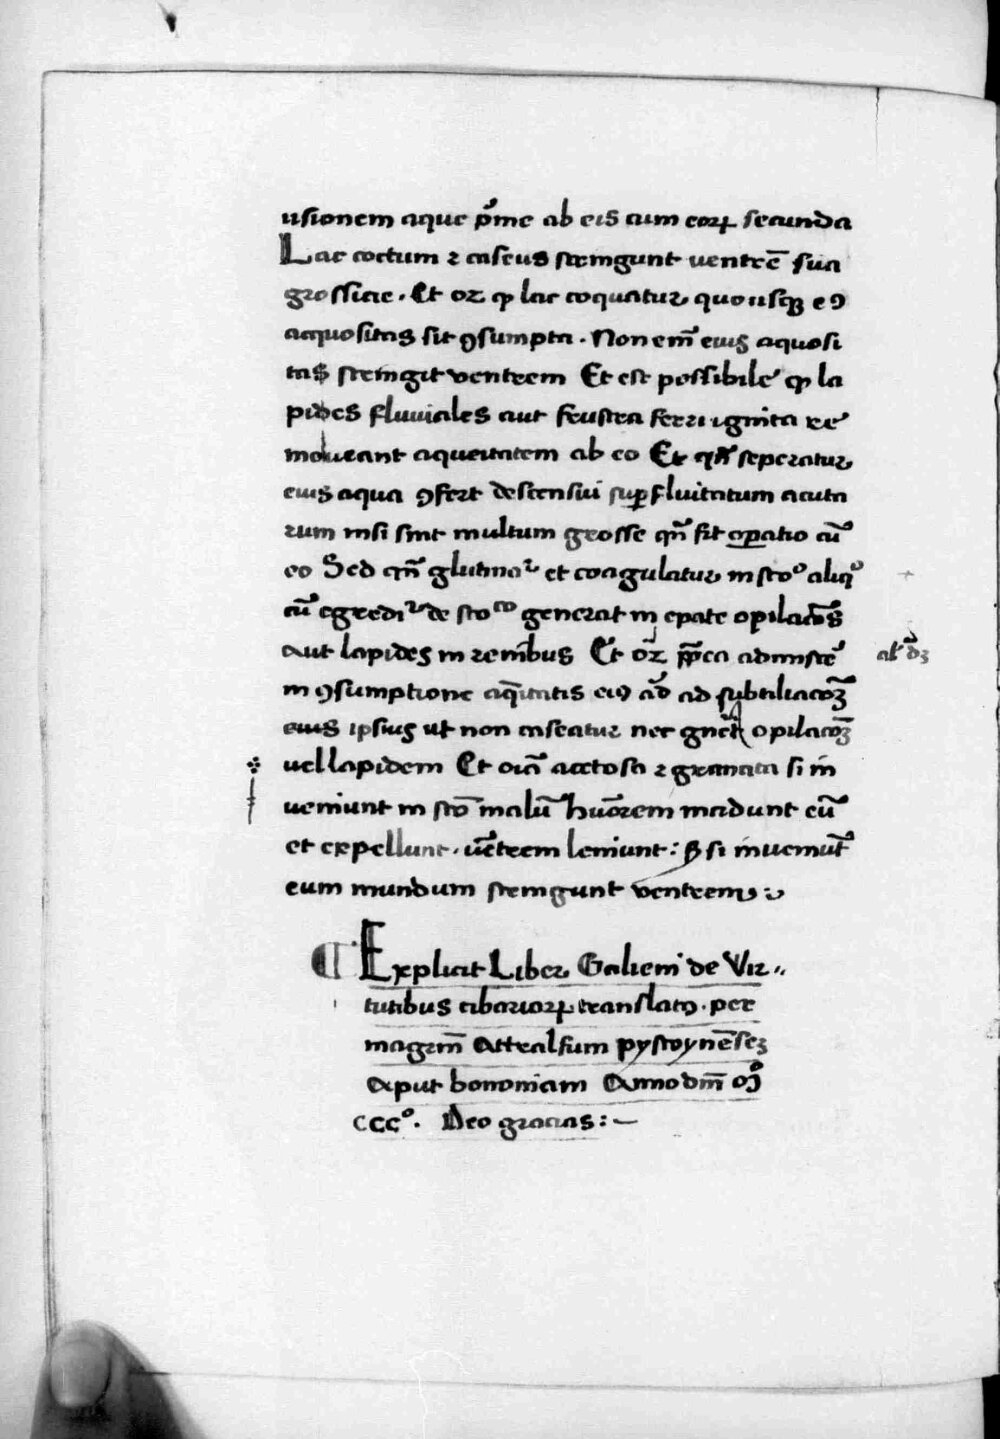 usionem aque p̄me ab eis cum eoꝝ secunda
Lac coctum ⁊ caseus stringunt ventrē sua
grossicie. Et oꝫ ꝙ lac coquatur quo usqꝫ eꝰ
acquositas sit ꝯsumpta. Non em̄ eius aquosi
tas stringit ventrem Et est possibile ꝙ la
pides fluviales aut frustra ferri ignita re
moveant aqueitatem ab eo Et qn̄ seperatur
eius aqua ꝯfert descensui suꝑfluitatum acuta
rum nisi sint multum grosse qn̄ fit oꝑatio cū
eo Sed qn̄ glutinaͬ et coagulatur in stoᵒ aliqᵒ
cū egrediͬ de stoᶜᵒ generat in epate opilacōēs
aut lapides in renibus Et oꝫ ꝓp̄ea admistē
al' dꝫ
in ꝯsumptione aq̄itatis eiꝰ ad subtiliacōꝫ
eius ipsius ut non caseatur nec opilacōꝫ
vel lapidem Et oīa acetosa ⁊ granata si in
veniunt in stō malū huōrem incidunt eū
et expellunt. vētrem leniunt: si inveniūt
eum mundum stringunt ventrem
¶ Explicit Liber Galieni de Vir
tutibus cibarioꝝ translatꝰ. per
magrm̄ Attralsum pystoynēsēꝫ
aput bononiam Anno dm̄
cccᵒ. Deo gracias:—